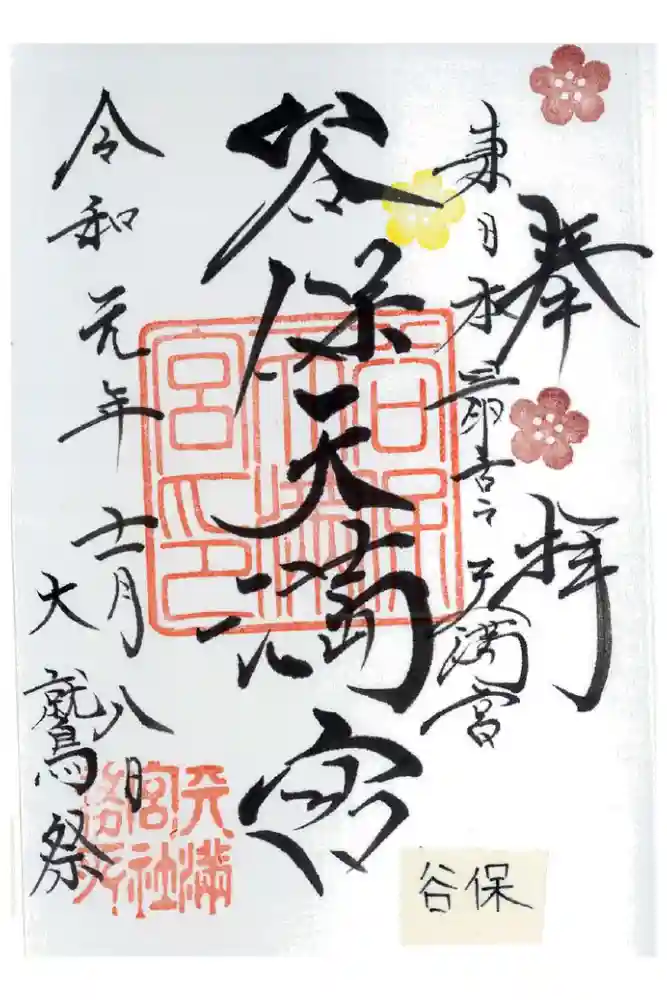 奉拝
東日本最古天満宮
谷保天満宮
令和元年十一月八日
大鷲祭
谷保天満宮印
天満宮社務所
谷保